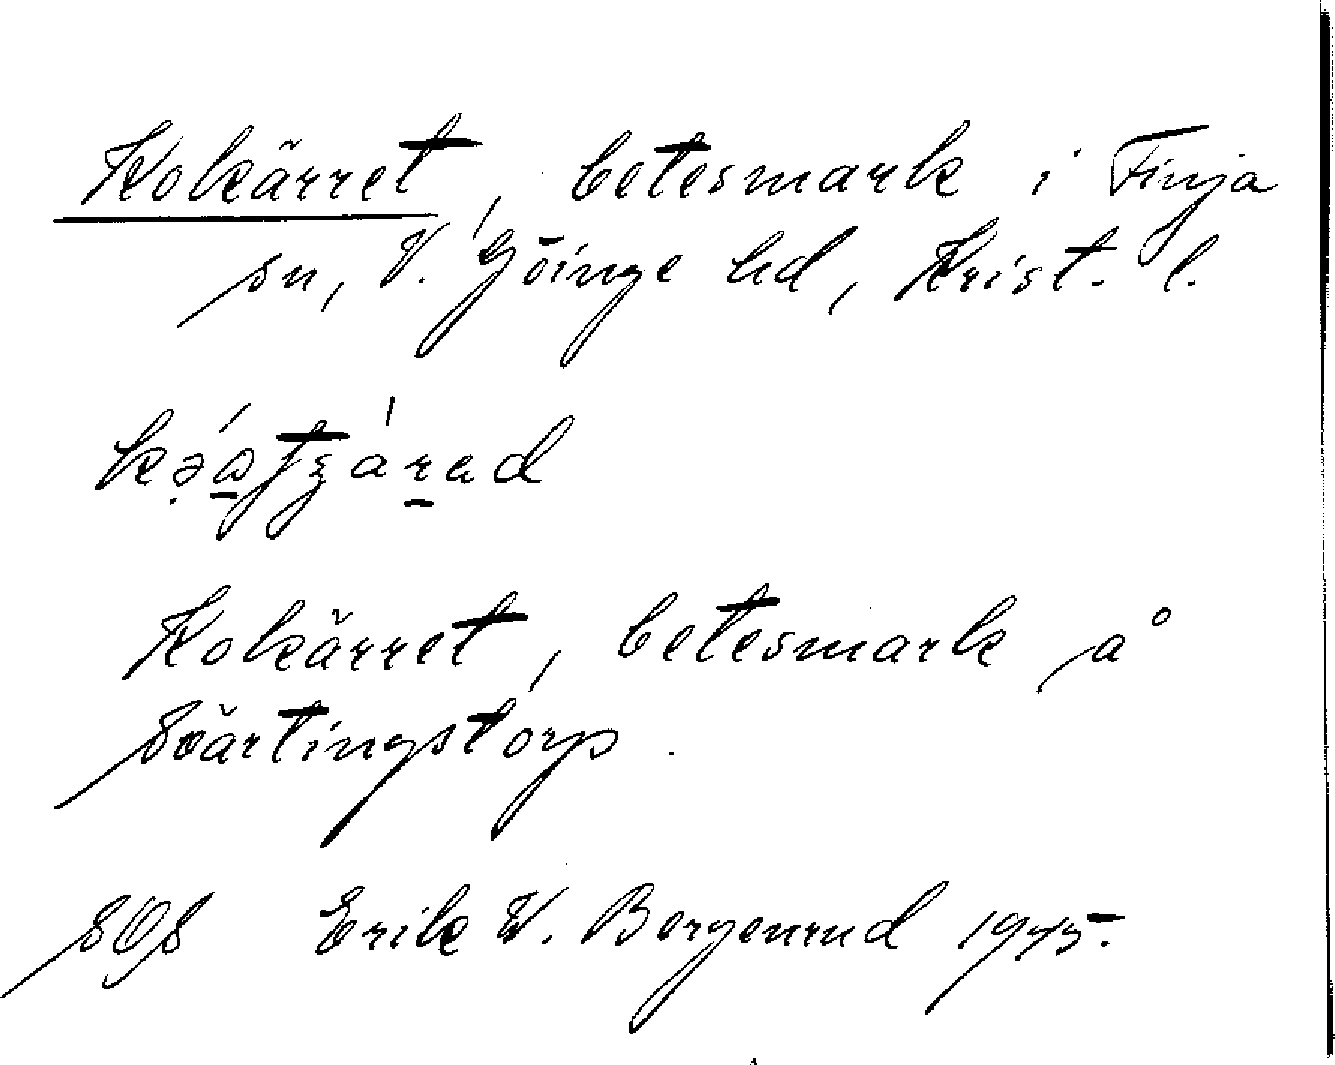 Kokärret, betesmark i Finja
sn, V. Göinge hd, Krist. l.
Kokärret, betesmark på
Svärtingstorp.
SOS Erik W. Bergenrud 1945.